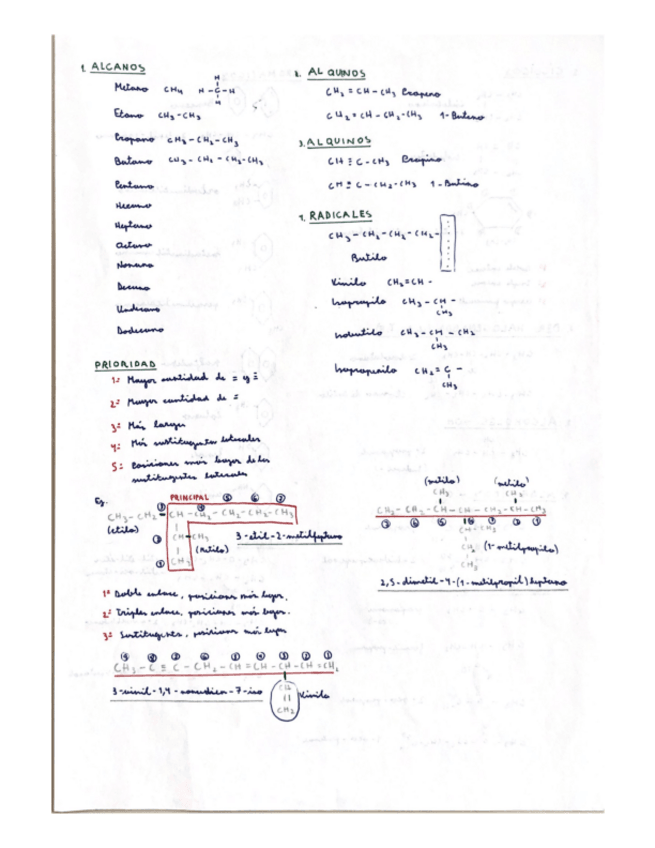 1. ALCANOS
Metano CH4
H
H - C - H
H
Etano CH3 - CH3
Propano CH3 - CH2 - CH3
Butano CH3 - CH2 - CH2 - CH3
Pentano
Hexano
Heptano
Octano
Nonano
Decano
Undecano
Dodecano
2. ALQUINOS
CH2 = CH - CH3 Propeno
CH2 = CH - CH2 - CH3 1-Buteno
3. ALQUINOS
CH ≡ C - CH3 Propino
CH ≡ C - CH2 - CH3 1-Butino
4. RADICALES
CH3 - CH2 - CH2 - CH2 -
Butilo
Vinilo CH2 = CH -
Isopropilo CH3 - CH -
CH3
Isobutilo CH3 - CH - CH2
CH3
Isopropenilo CH2 = C -
CH3
PRIORIDAD
1º Mayor cantidad de = y ≡
2º Mayor cantidad de =
3º Más larga
4º Más sustituyentes laterales
5º Posiciones más bajas de los
sustituyentes laterales
Ej.
PRINCIPAL ⑤ ⑥ ⑦
CH3 - CH2 - CH - CH2 - CH2 - CH2 - CH3
(etilo)
② CH - CH3
(metilo)
① CH3
3-etil-2-metilheptano
(metilo) (metilo)
CH3 CH3
CH3 - CH2 - CH - CH - CH2 - CH - CH3
⑦ ⑥ ⑤ ④ ③ ② ①
CH - CH3
CH2 (1-metilpropilo)
CH3
2,5-dimetil-4-(1-metilpropil)heptano
1º Doble enlace, posiciones más bajas.
2º Triples enlace, posiciones más bajas.
3º Sustituyentes, posiciones más bajas
⑨ ⑧ ⑦ ⑥ ⑤ ④ ③ ② ①
CH3 - C ≡ C - CH2 - CH = CH - CH - CH = CH2
CH
||
CH2
Vinilo
3-vinil-1,4-nonadien-7-ino